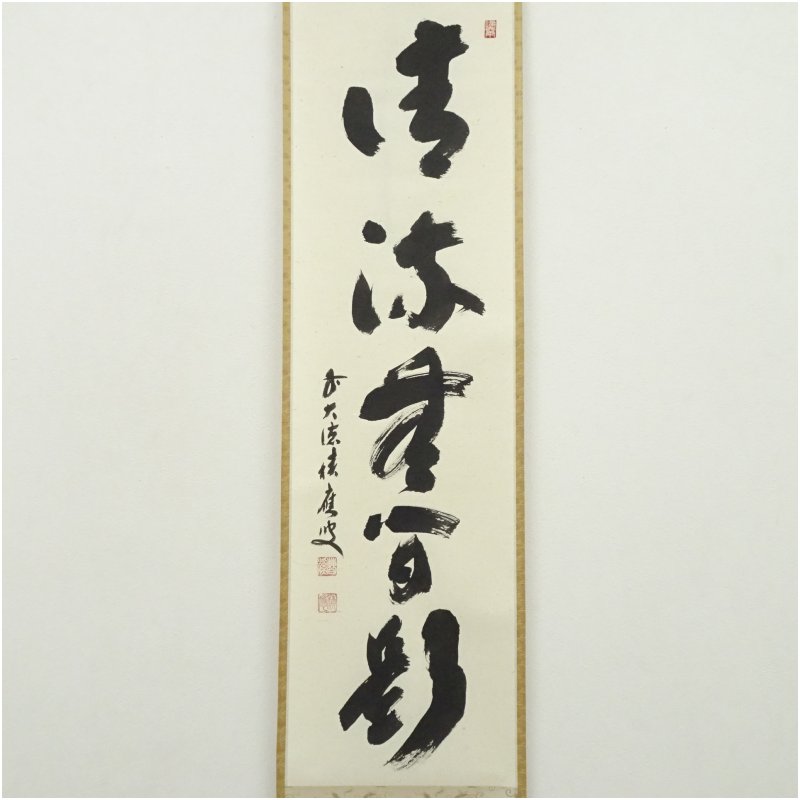 清流無間断
前大徳積應叟